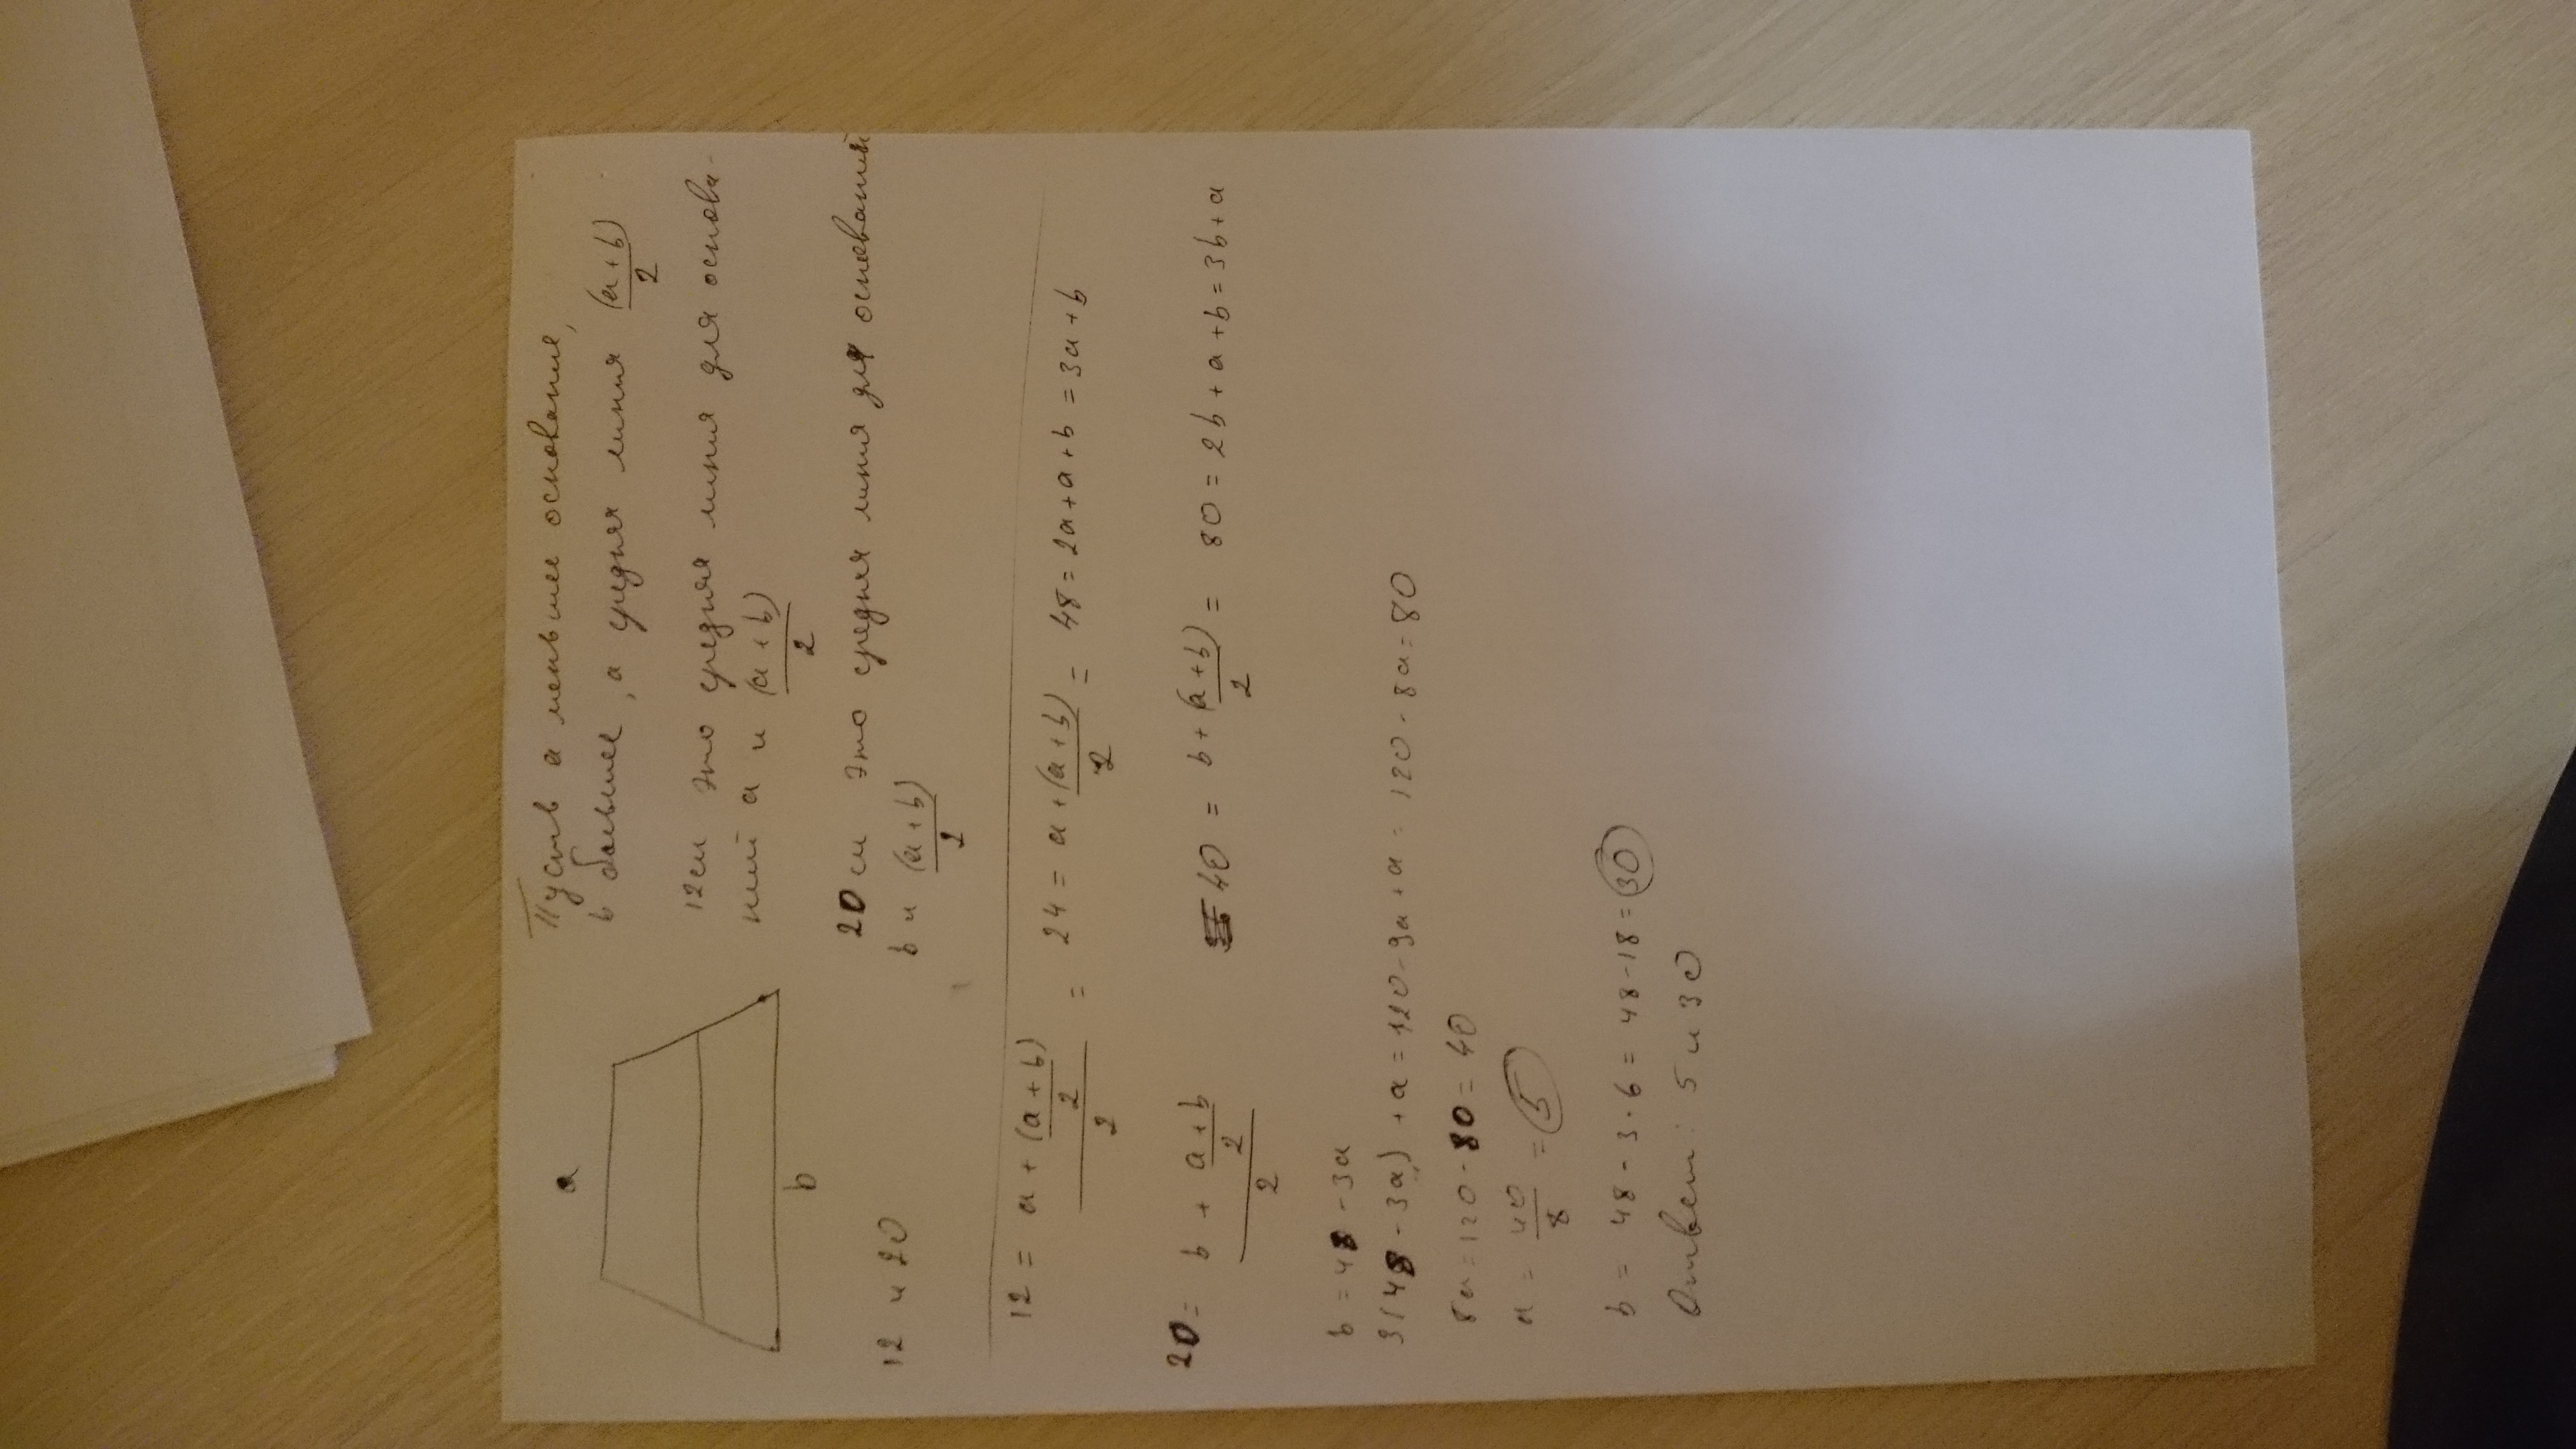 a
b
12 и 20
Пусть а меньшее основание,
b большее, а средняя линия (a+b)/2
12см это средняя линия для основа-
ний а и (a+b)/2
20см это средняя линия для оснований
b и (a+b)/2
12 = (a + (a+b)/2)/2 = 24 = a + (a+b)/2 = 48 = 2a + a + b = 3a + b
20 = (b + (a+b)/2)/2 40 = b + (a+b)/2 = 80 = 2b + a + b = 3b + a
b = 48 - 3a
3(48 - 3a) + a = 120 - 9a + a = 120 - 8a = 80
8a = 120 - 80 = 40
a = 40/8 = 5
b = 48 - 3·6 = 48 - 18 = 30
Ответ: 5 и 30